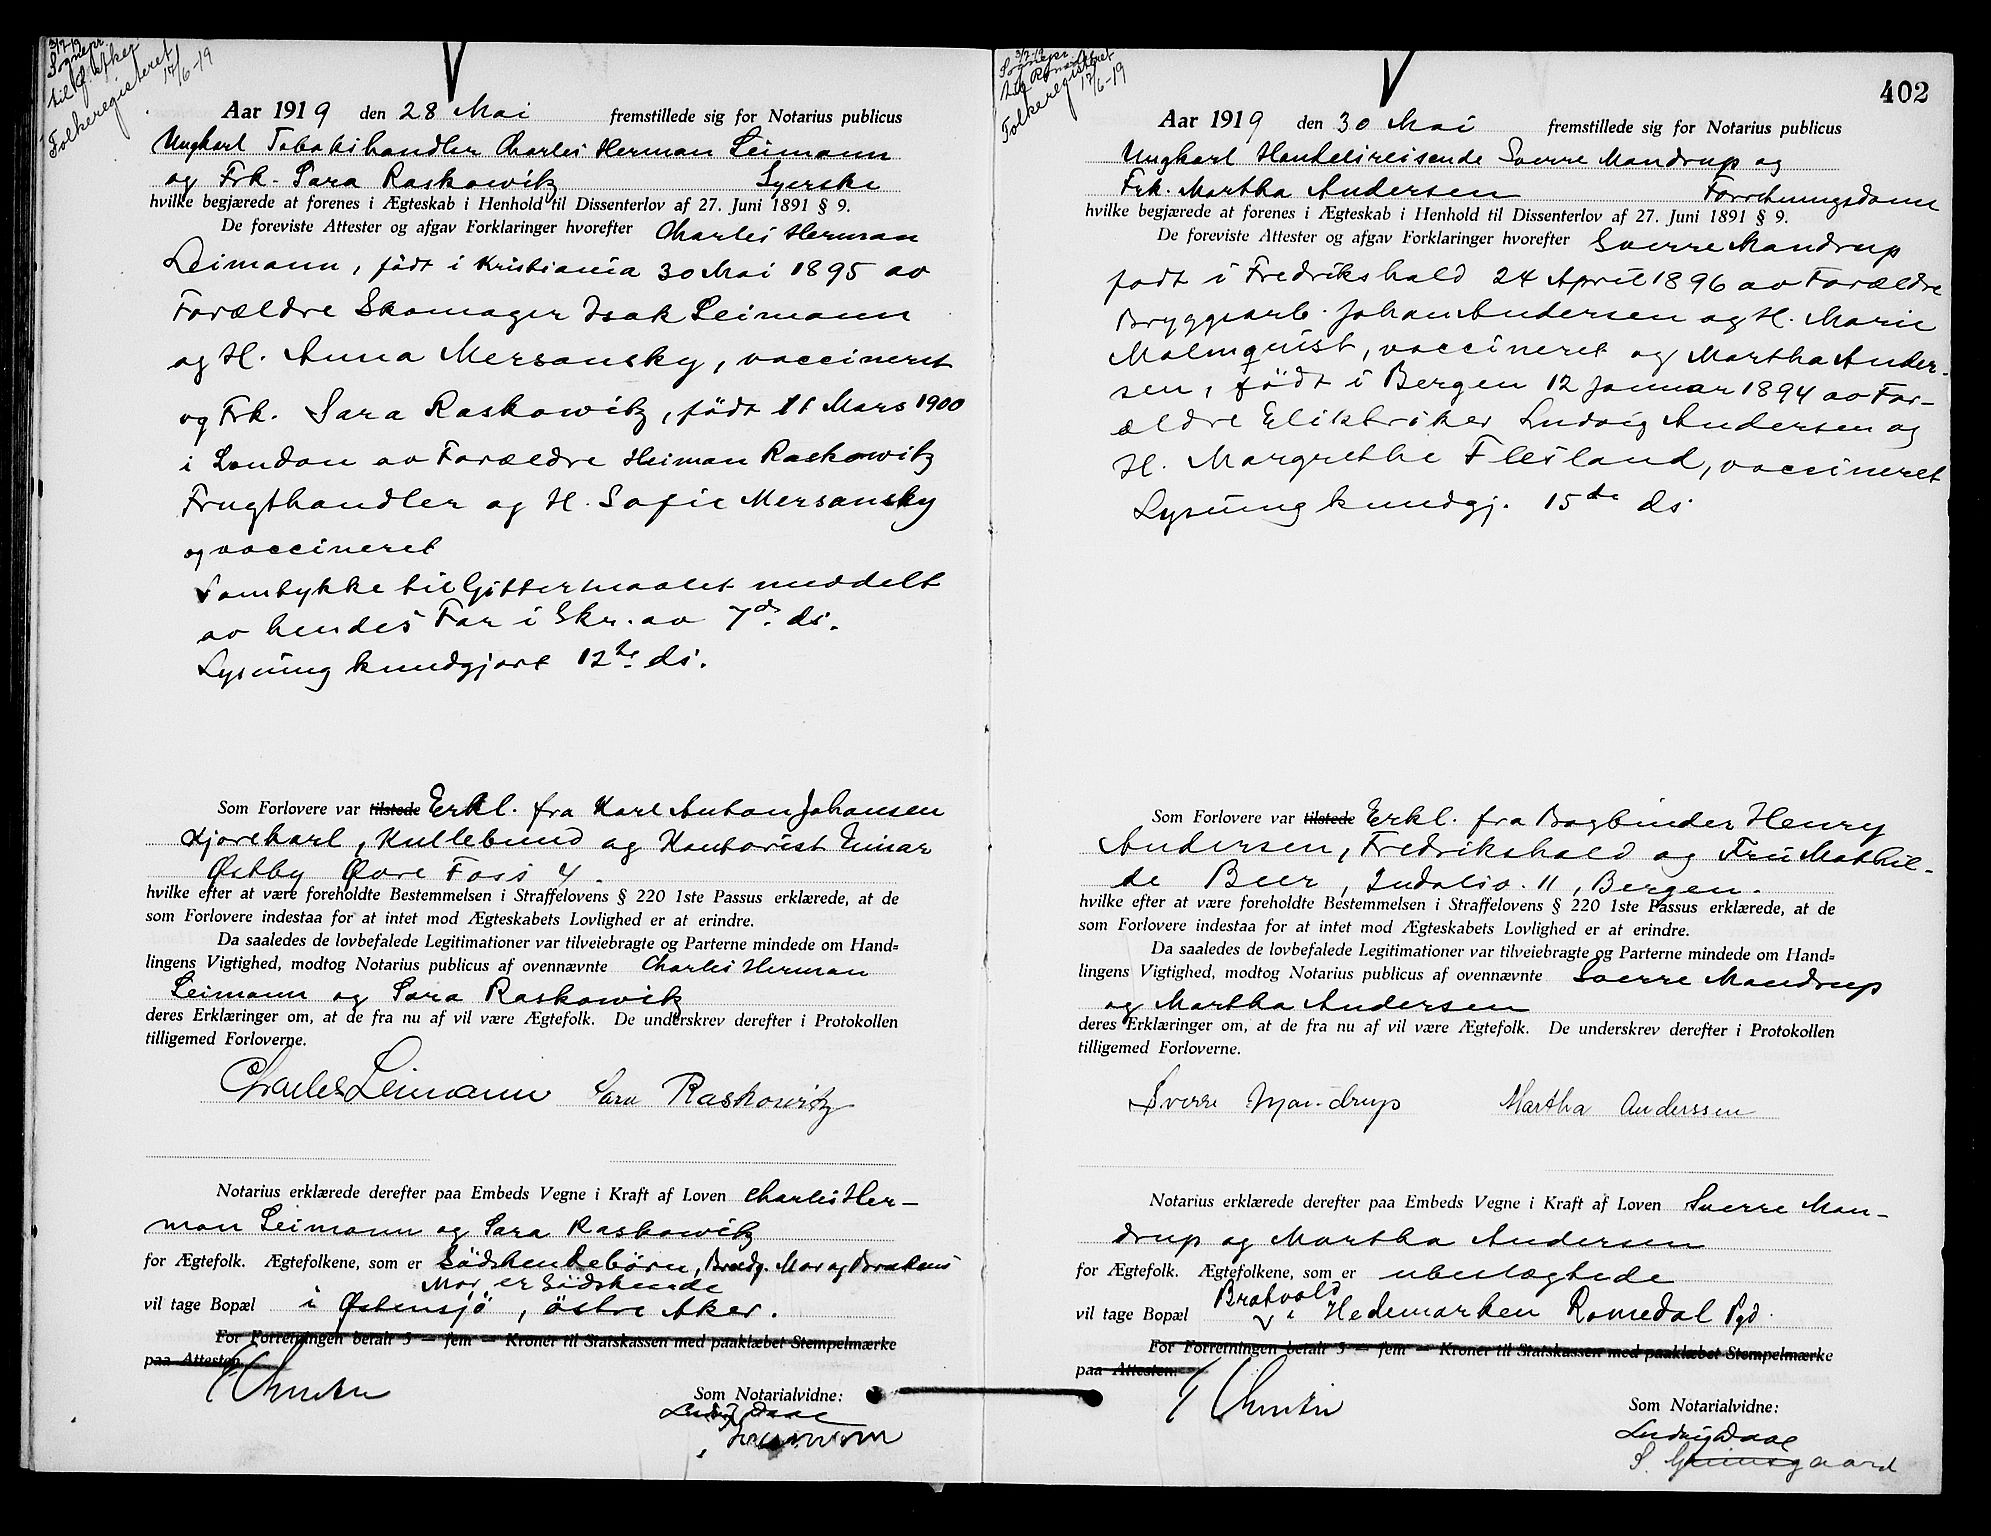 3/7-19
Sognepr.
til Ø. Aker
Folkeregisteret
17/6-19
Aar 1919 den 28 Mai fremstillede sig for Notarius publicus
Ungkarl Tobakshandler Charles Herman Leimann
og Frk. Sara Raskowitz Syerske
hvilke begjærede at forenes i Ægteskab i Henhold til Dissenterlov af 27. Juni 1891 § 9.
De foreviste Attester og afgav Forklaringer hvorefter Charles Herman
Leimann, født i Kristiania 30 Mai 1895 av
Forældre Skomager Isak Leimann
og H. Anna Mersansky, vaccineret
og Frk. Sara Raskowitz, født 11 Mars 1900
i London av Forældre Heiman Raskowitz
Frugthandler og H. Sofie Mersansky
og vaccineret
Samtykke til Giftermaalet meddelt
av hendes Far i Skr. av 7d. ds.
Lysning kundgjort 12te ds.
Som Forlovere var tilstede Erkl. fra Karl Anton Johansen
Kjørekarl, Kullebund og Kontorist Einar
Østby Øvre Foss 4.
hvilke efter at være foreholdte Bestemmelsen i Straffelovens § 220 1ste Passus erklærede, at de
som Forlovere indestaa for at intet mod Ægteskabets Lovlighed er at erindre.
Da saaledes de lovbefalede Legitimationer var tilveiebragte og Parterne mindede om Hand=
lingens Vigtighed, modtog Notarius publicus af ovennævnte Charles Herman
Leimann og Sara Raskowitz
deres Erklæringer om, at de fra nu af vil være Ægtefolk. De underskrev derefter i Protokollen
tilligemed Forloverne.
Charles Leimann Sara Raskowitz
Notarius erklærede derefter paa Embeds Vegne i Kraft af Loven Charles Her-
man Leimann og Sara Raskowitz
for Ægtefolk. Ægtefolkene, som er Södskendebörn, Brudg. Mor og Brudens
Mor er Södskende
vil tage Bopæl i Østensjö, östre Aker.
For Forretningen betalt 5 — fem — Kroner til Statskassen med paaklæbet Stempelmærke
paa Attesten.
Som Notarialvidne:
Ludvig Daae
402
3/7-19
Sognepr.
til Romedal
Folkeregisteret
17/6-19
Aar 1919 den 30 Mai fremstillede sig for Notarius publicus
Ungkarl Handelsreisende Sverre Mandrup og
Frk. Martha Andersen Forretningsdame
hvilke begjærede at forenes i Ægteskab i Henhold til Dissenterlov af 27. Juni 1891 § 9.
De foreviste Attester og afgav Forklaringer hvorefter Sverre Mandrup
født i Fredrikshald 24 April 1896 av Forældre
Bryggearb. Johan Andersen og H. Marie
Malmquist, vaccineret og Martha Ander-
sen, født i Bergen 12 Januar 1894 av For-
ældre Elektriker Ludvig Andersen og
H. Margrethe Flesland, vaccineret
Lysning kundgj. 15de ds.
Som Forlovere var tilstede Erkl. fra Bogbinder Henry
Andersen, Fredrikshald og Fru Mathil-
de Beer, Indalsv. 11, Bergen.
hvilke efter at være foreholdte Bestemmelsen i Straffelovens § 220 1ste Passus erklærede, at de
som Forlovere indestaa for at intet mod Ægteskabets Lovlighed er at erindre.
Da saaledes de lovbefalede Legitimationer var tilveiebragte og Parterne mindede om Hand=
lingens Vigtighed, modtog Notarius publicus af ovennævnte Sverre Mandrup
og Martha Andersen
deres Erklæringer om, at de fra nu af vil være Ægtefolk. De underskrev derefter i Protokollen
tilligemed Forloverne.
Sverre Mandrup Martha Anderssen
Notarius erklærede derefter paa Embeds Vegne i Kraft af Loven Sverre Man-
drup og Martha Andersen
for Ægtefolk. Ægtefolkene, som er ubeslægtede
vil tage Bopæl Bratvold i Hedemarken Romedal Pgd.
For Forretningen betalt 5 — fem — Kroner til Statskassen med paaklæbet Stempelmærke
paa Attesten.
Som Notarialvidne:
Ludvig Daae
S. Grimsgaard